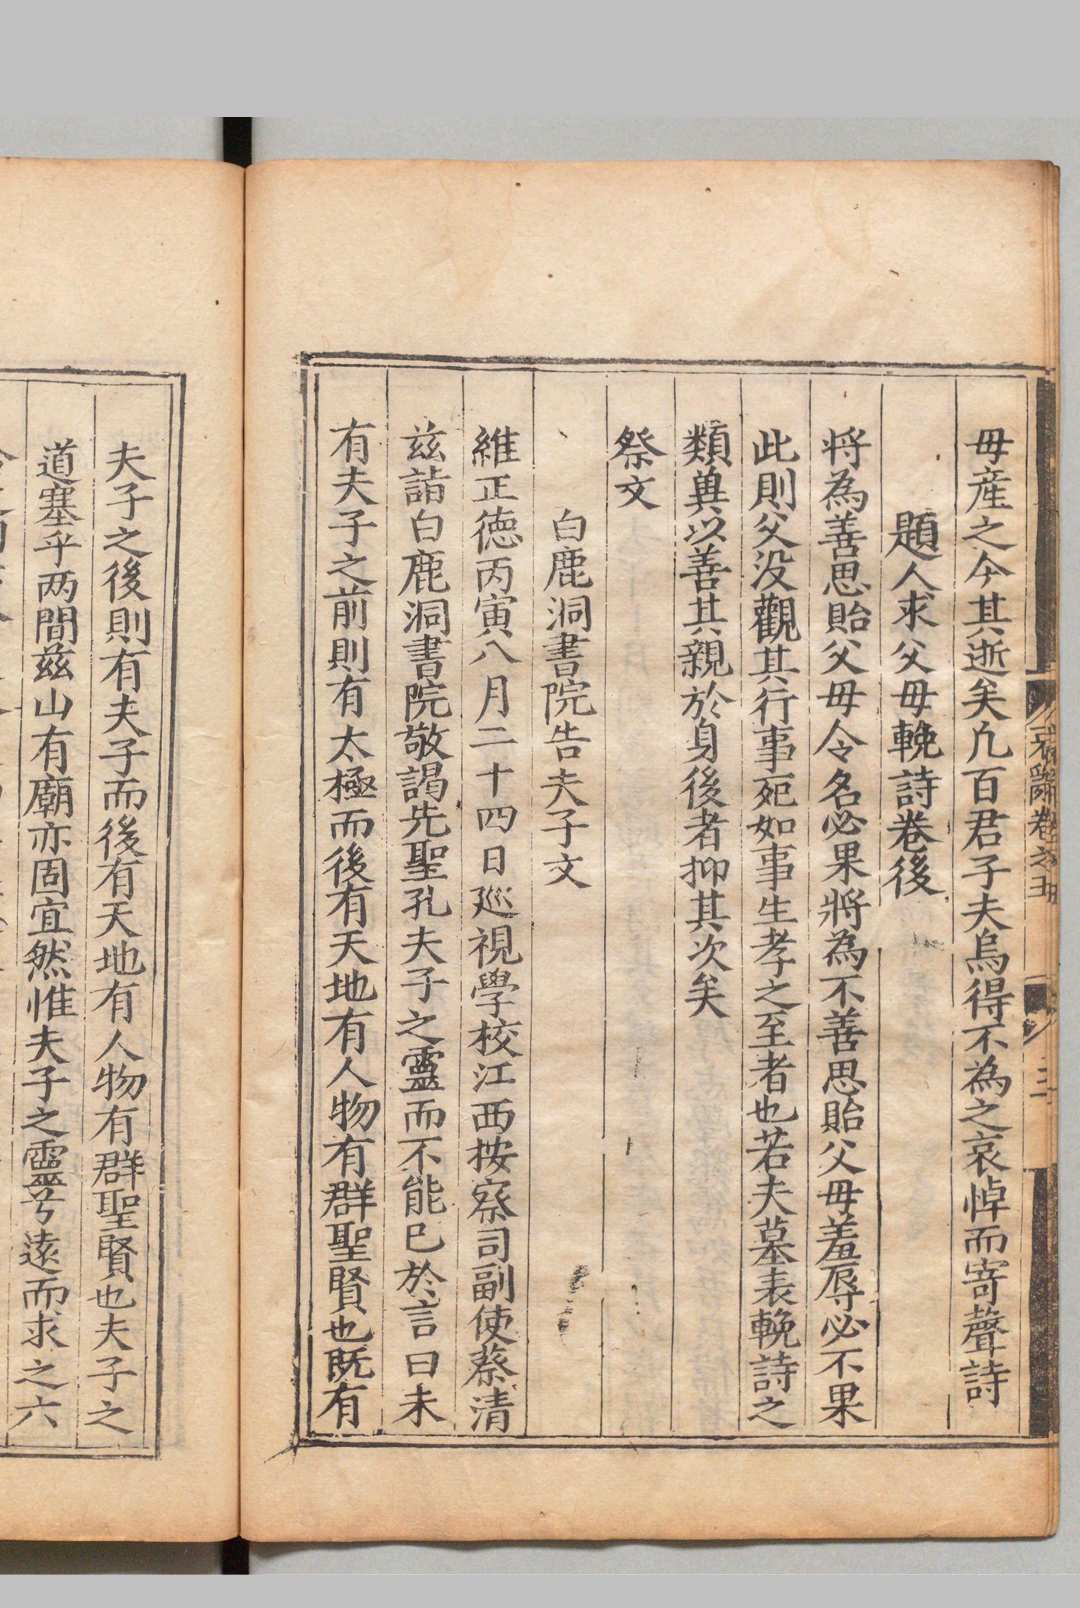 毋産之今其逝矣凢百君子夫烏得不為之哀悼而寄聲詩
題人求父毋輓詩卷後
將為善思貽父毋令名必果將為不善思貽父毋羞辱必不果
此則父沒觀其行事死如事生孝之至者也若夫墓表輓詩之
類與以善其親於身後者抑其次矣
祭文
白鹿洞書院告夫子文
維正德丙寅八月二十四日廵視學校江西按察司副使蔡清
兹詣白鹿洞書院敬謁先聖孔夫子之靈而不能已於言曰未
有夫子之前則有太極而後有天地有人物有群聖賢也既有
夫子之後則有夫子而後有天地有人物有群聖賢也夫子之
道塞乎两間兹山有廟亦固宜然惟夫子之靈兮遠而求之六